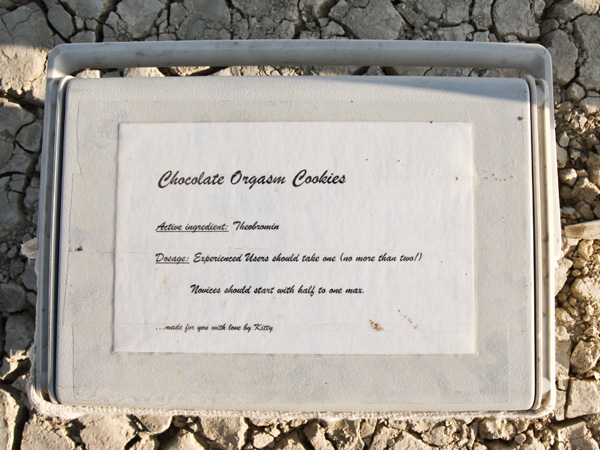 Chocolate Orgasm Cookies
Active ingredient: Theobromin
Dosage: Experienced Users should take one (no more than two!)
Novices should start with half to one max.
...made for you with love by Kitty